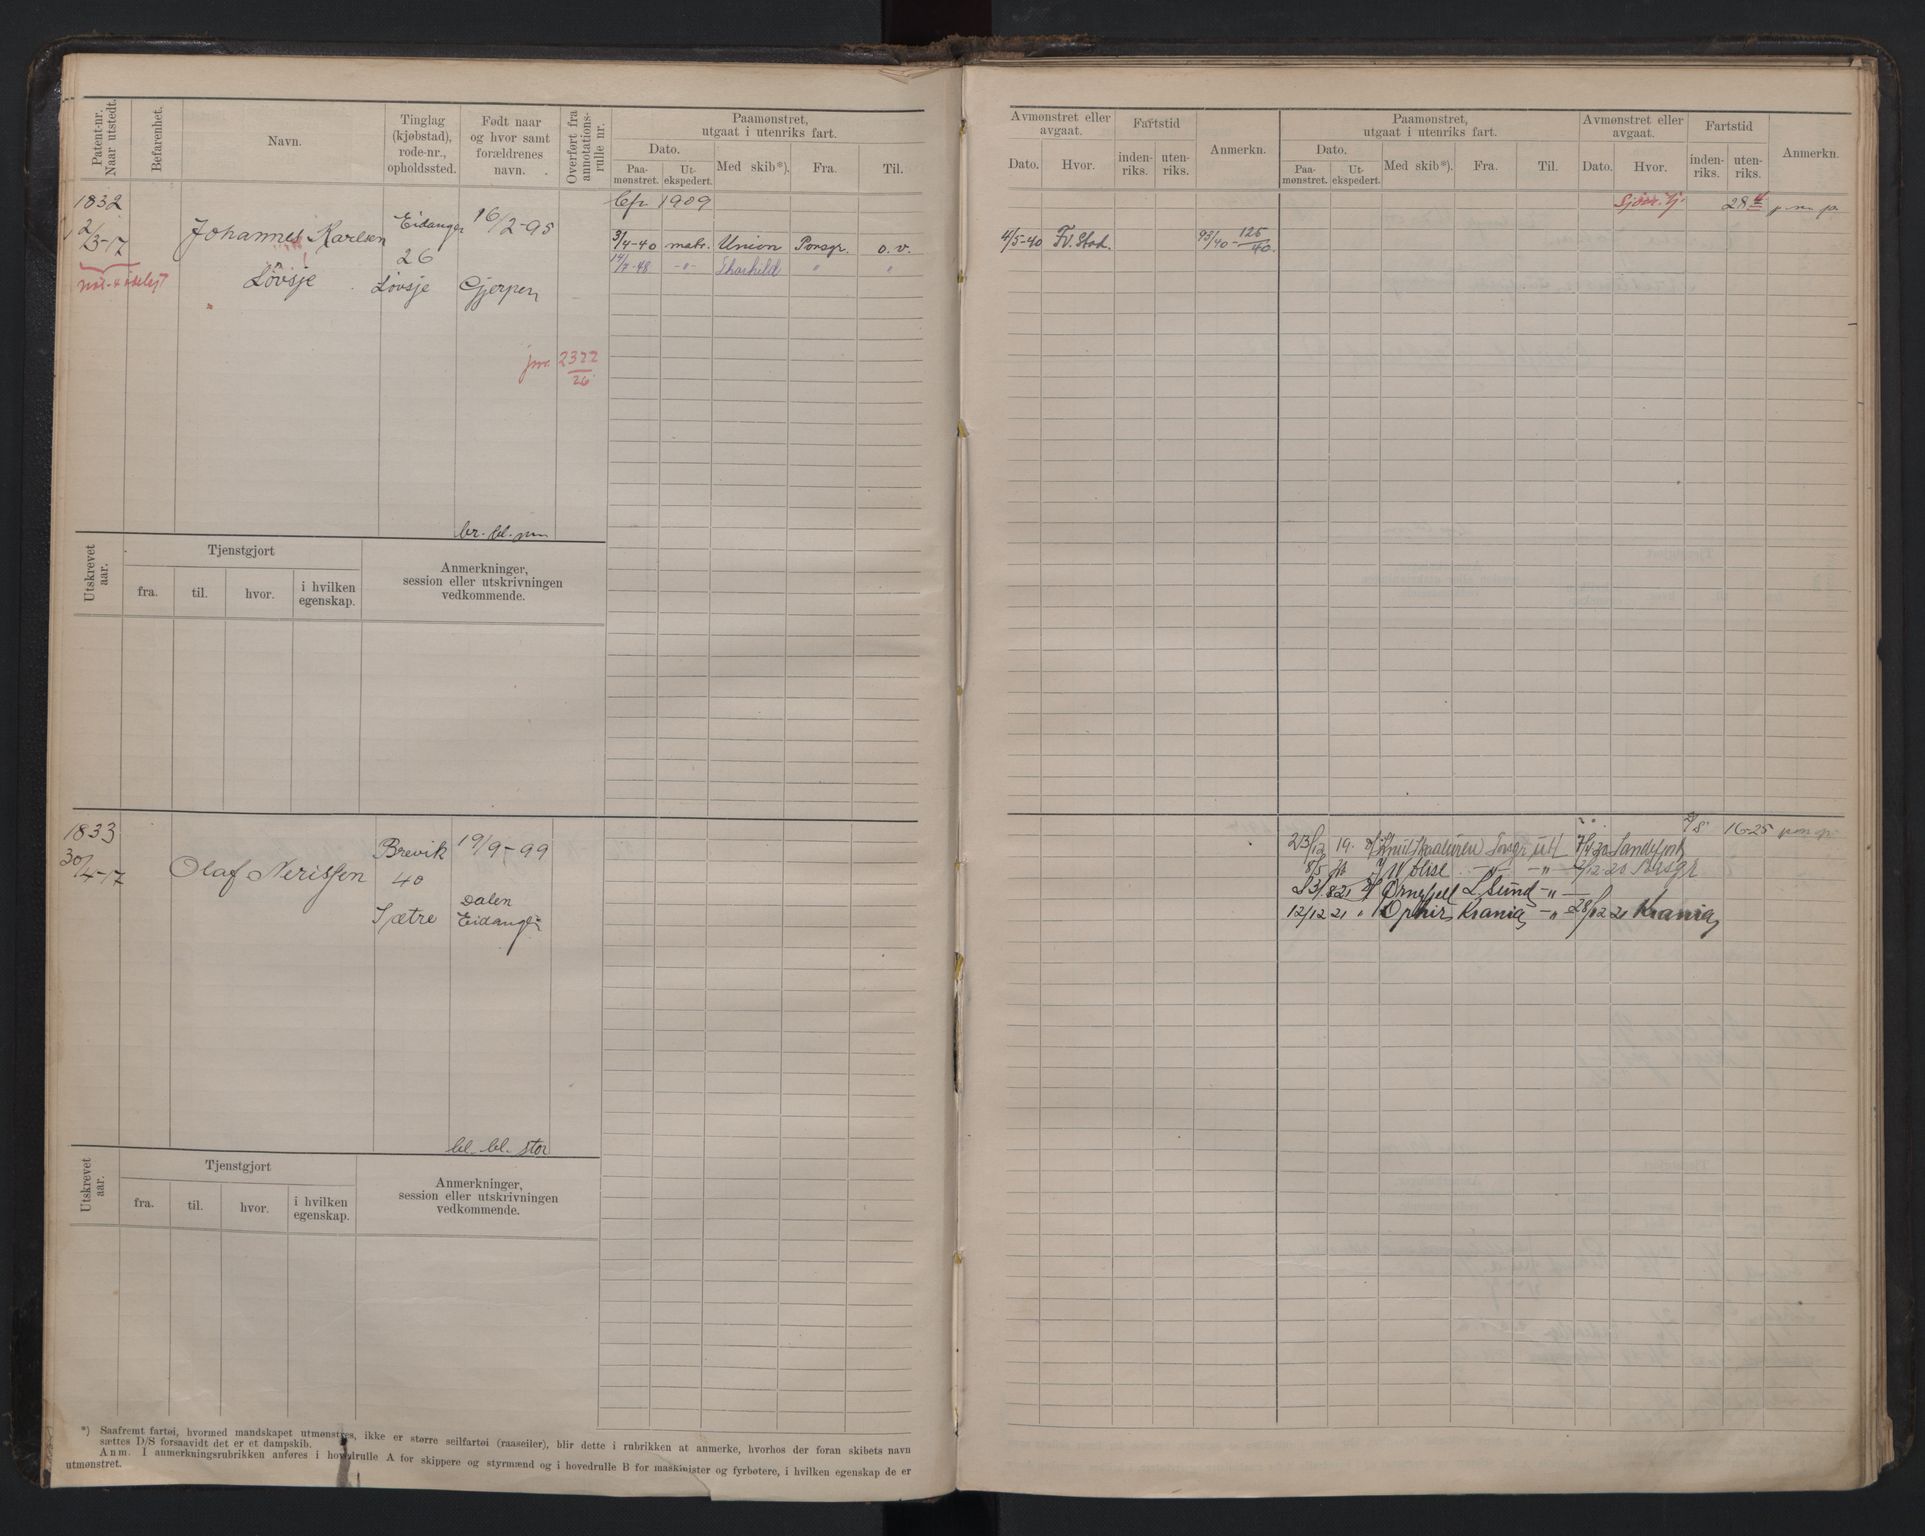 Patent-nr. Naar utstedt. Befarenhet. Navn. Tinglag (kjøbstad), rode-nr., opholdssted. Født naar og hvor samt forældrenes navn. Overført fra annotations-rulle nr. Paamønstret, utgaat i utenriks fart.
Dato. Paa-mønstret. Ut-ekspedert. Med skib*). Fra. Til.
1832
2/3-17
Johannes Karlsen
Løvsje
Eidanger
26
Løvsje
16/2-95
Gjerpen
jnr. 2322/26
1909
3/4-40 matr. Union Porsgr. o. v.
14/7-48 -"- " "
br. bl.
Utskrevet aar. Tjenstgjort fra. til. hvor. i hvilken egenskap. Anmerkninger, session eller utskrivningen vedkommende.
1833
30/4-17
Olaf Nerissen
Brevik
40
Sætre
19/9-99
Dalen
Eidanger
bl. bl. stor
Utskrevet aar. Tjenstgjort fra. til. hvor. i hvilken egenskap. Anmerkninger, session eller utskrivningen vedkommende.
*) Saafremt fartøi, hvormed mandskapet utmønstres, ikke er større seilfartøi (raaseiler), blir dette i rubrikken at anmerke, hvorhos der foran skibets navn
sættes D/S forsaavidt det er et dampskib.
Anm. I anmerkningsrubrikken anføres i hovedrulle A for skippere og styrmænd og i hovedrulle B for maskinister og fyrbøtere, i hvilken egenskap de er
utmønstret.
Avmønstret eller avgaat. Dato. Hvor. Fartstid inden-riks. uten-riks. Anmerkn. Paamønstret, utgaat i utenriks fart. Dato. Paa-mønstret. Ut-ekspedert. Med skib*). Fra. Til. Avmønstret eller avgaat. Dato. Hvor. Fartstid inden-riks. uten-riks. Anmerkn.
28
4/5-40 Fr.Stad. 93/40-125/40
16-25
23/12 19. Porsgr utl 7/4 20 Sandefjord
8/5 -"- -"- 2/12-20 Porsgr
3/8 21 Ørnefjell L.Sund -"-
12/12 21 " Ophir Krania -"- 28/12 21 Krania